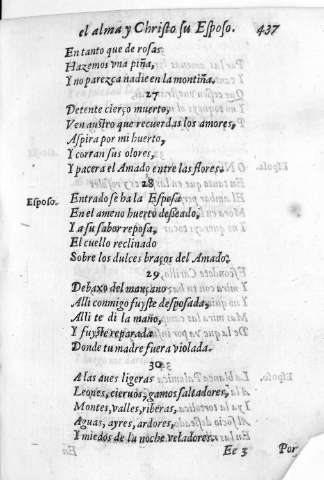 el alma y Christo su Esposo. 437
En tanto que de rosas
Hazemos vna piña,
Y no parezca nadie en la montiña.
27
Detente cierço muerto,
Ven austro que recuerdas los amores,
Aspira por mi huerto,
Y corran sus olores,
Y pacera el Amado entre las flores.
28
Esposo. Entrado se ha la Esposa
En el ameno huerto desseado,
Y a su sabor reposa,
El cuello reclinado
Sobre los dulces braços del Amado.
29
Debaxo del mançano
Alli conmigo fuyste desposada,
Alli te di la mano,
Y fuyste reparada
Donde tu madre fuera violada.
30
A las aues ligeras
Leones, cieruos, gamos saltadores,
Montes, valles, riberas,
Aguas, ayres, ardores,
Y miedos de la noche veladores.
Ee 3 Por